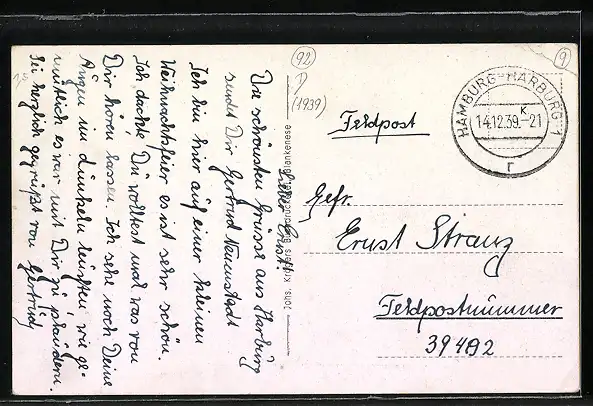 Lieber Ernst!
Die schönsten Grüsse aus Harburg
sendet Dir Gertrud Neuenstadt
Ich bin hier auf einer kleinen
Weihnachtsfeier es ist sehr schön.
Ich dachte Du wolltest mal was von
Dir hören lassen. Ich sehe noch Deine
Augen im dunkeln leuchten, wie ge-
mütlich es war mit Dir zu plaudern.
Sei herzlich gegrüßt von Gertrud
92
(1939)
9
HAMBURG-HARBURG 1
K
14.12.39.-21
r
Feldpost
Gefr.
Ernst Stranz
Feldpostnummer
39492